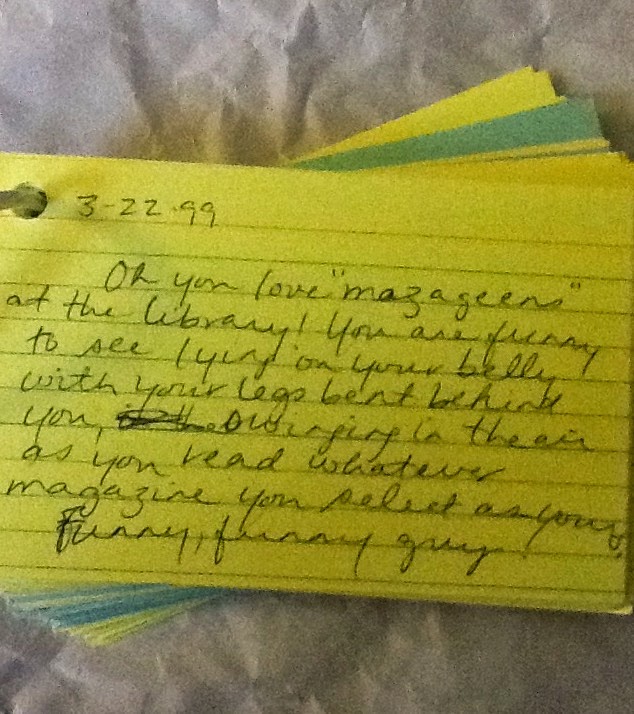 3-22-99
Oh you love "mazageens"
at the library! You are funny
to see lying on your belly
with your legs bent behind
you, swinging in the air
as you read whatever
magazine you select as yours.
Funny, funny guy!